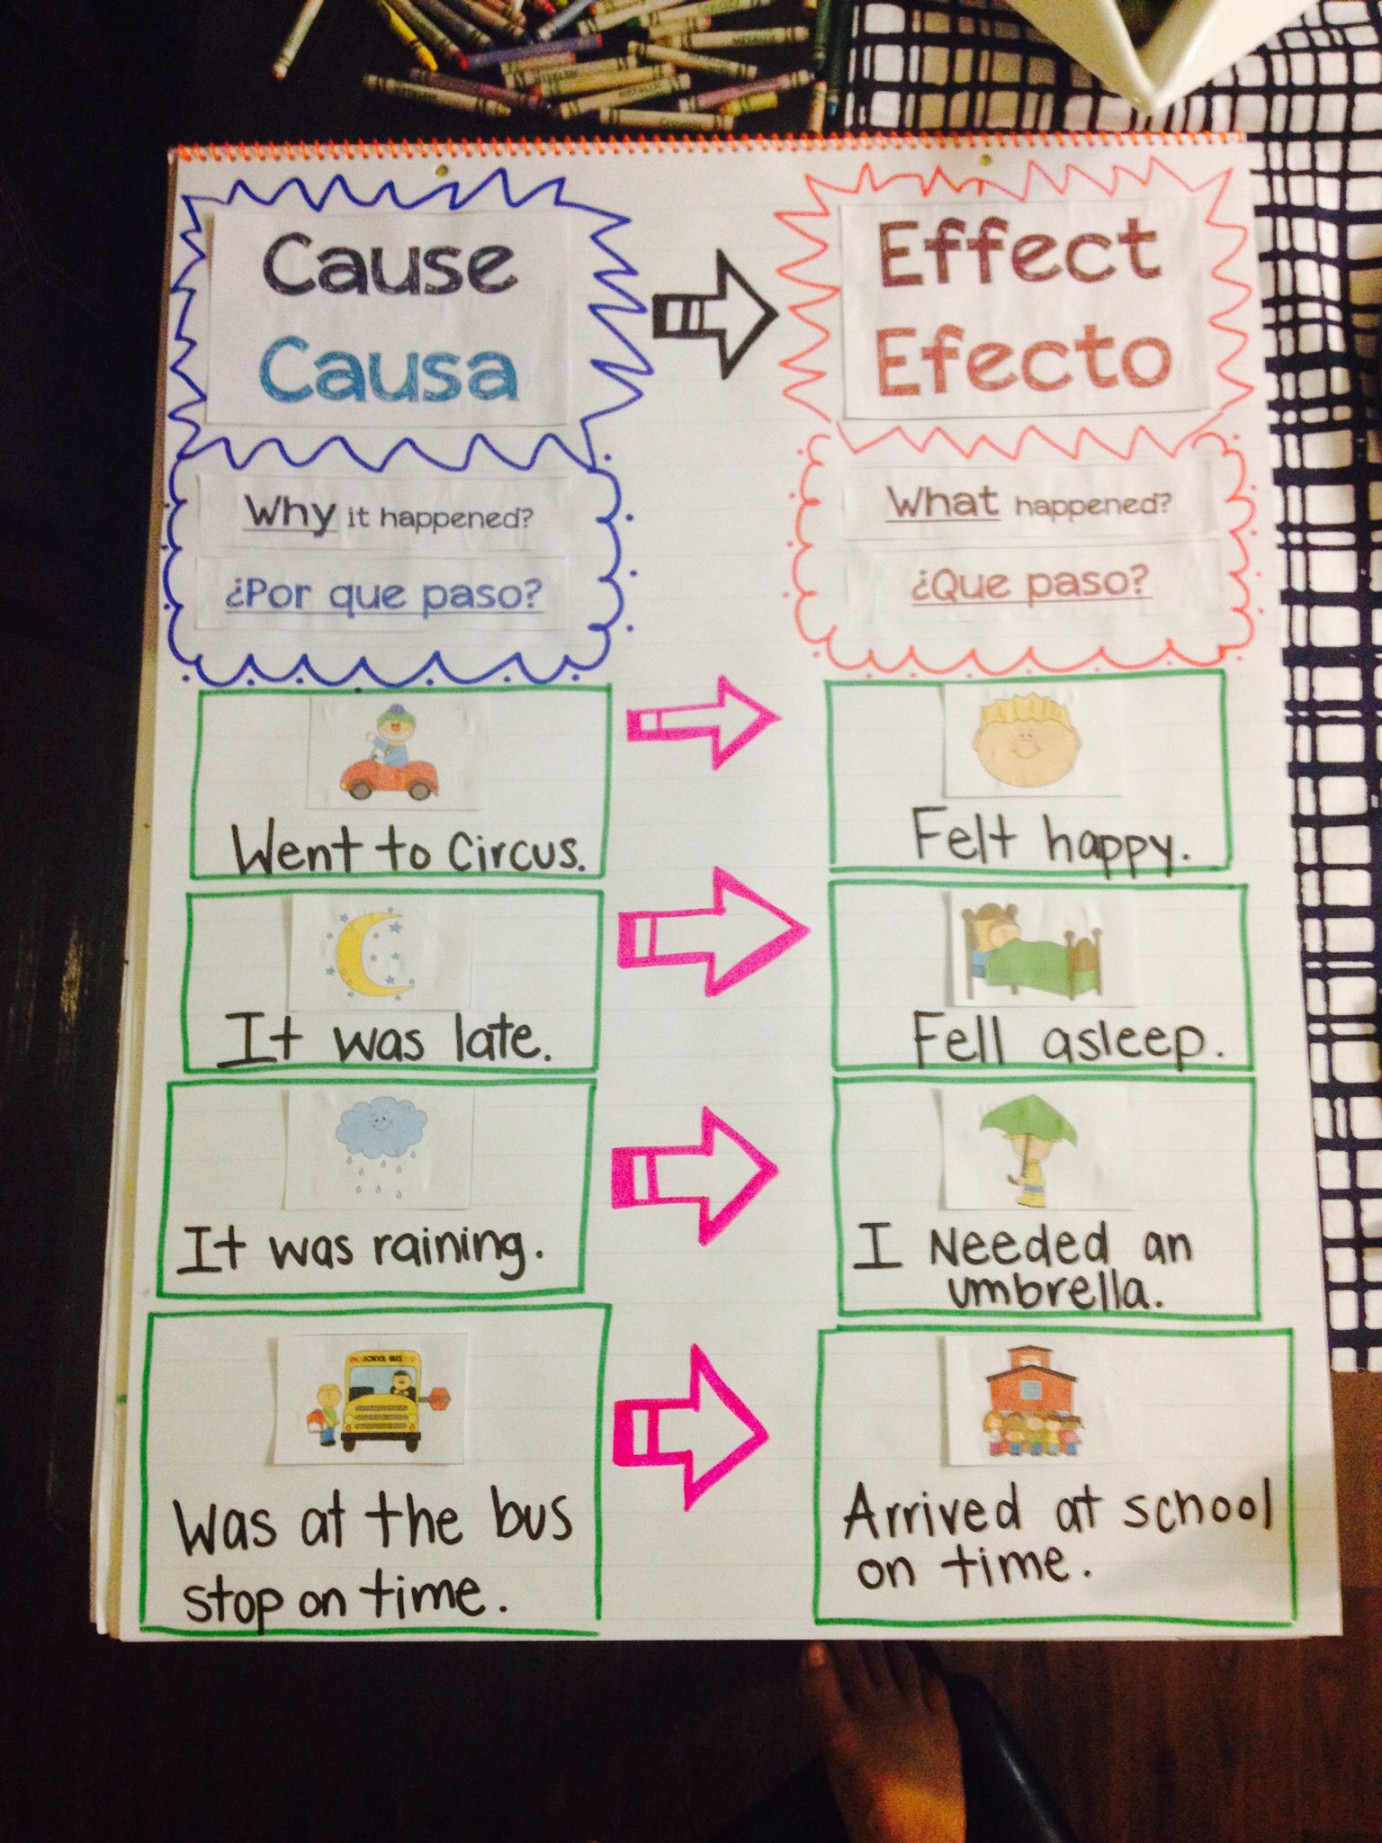 Cause
Causa
Effect
Efecto
Why it happened?
¿Por que paso?
What happened?
¿Que paso?
Went to Circus.
Felt happy.
It was late.
Fell asleep.
It was raining.
I Needed an
umbrella.
SCHOOL BUS
Was at the bus
stop on time.
Arrived at school
on time.